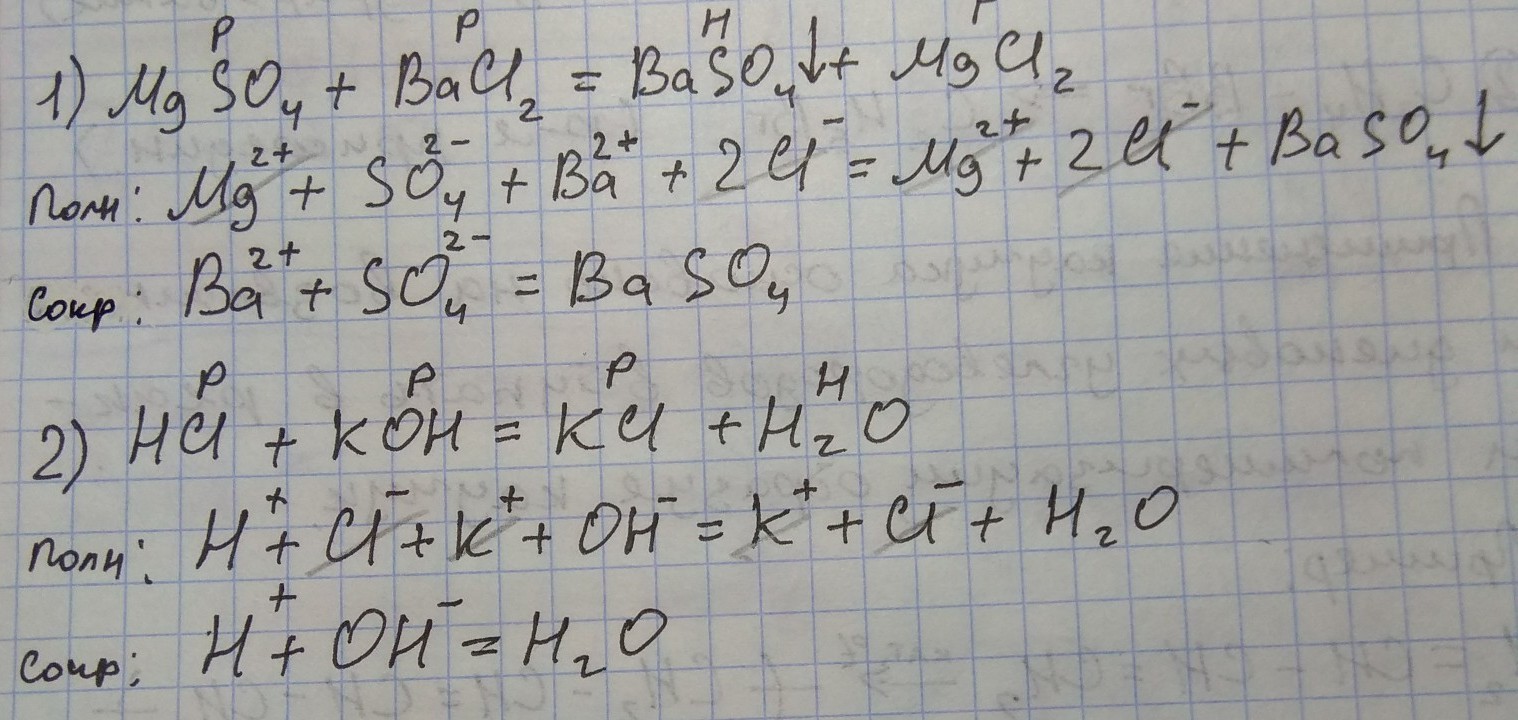 Р Р Н Р
1) MgSO₄ + BaCl₂ = BaSO₄↓ + MgCl₂
Полн: Mg²⁺ + SO₄²⁻ + Ba²⁺ + 2Cl⁻ = Mg²⁺ + 2Cl⁻ + BaSO₄↓
Сокр: Ba²⁺ + SO₄²⁻ = BaSO₄
Р Р Р Н
2) HCl + KOH = KCl + H₂O
Полн: H⁺ + Cl⁻ + K⁺ + OH⁻ = K⁺ + Cl⁻ + H₂O
Сокр: H⁺ + OH⁻ = H₂O